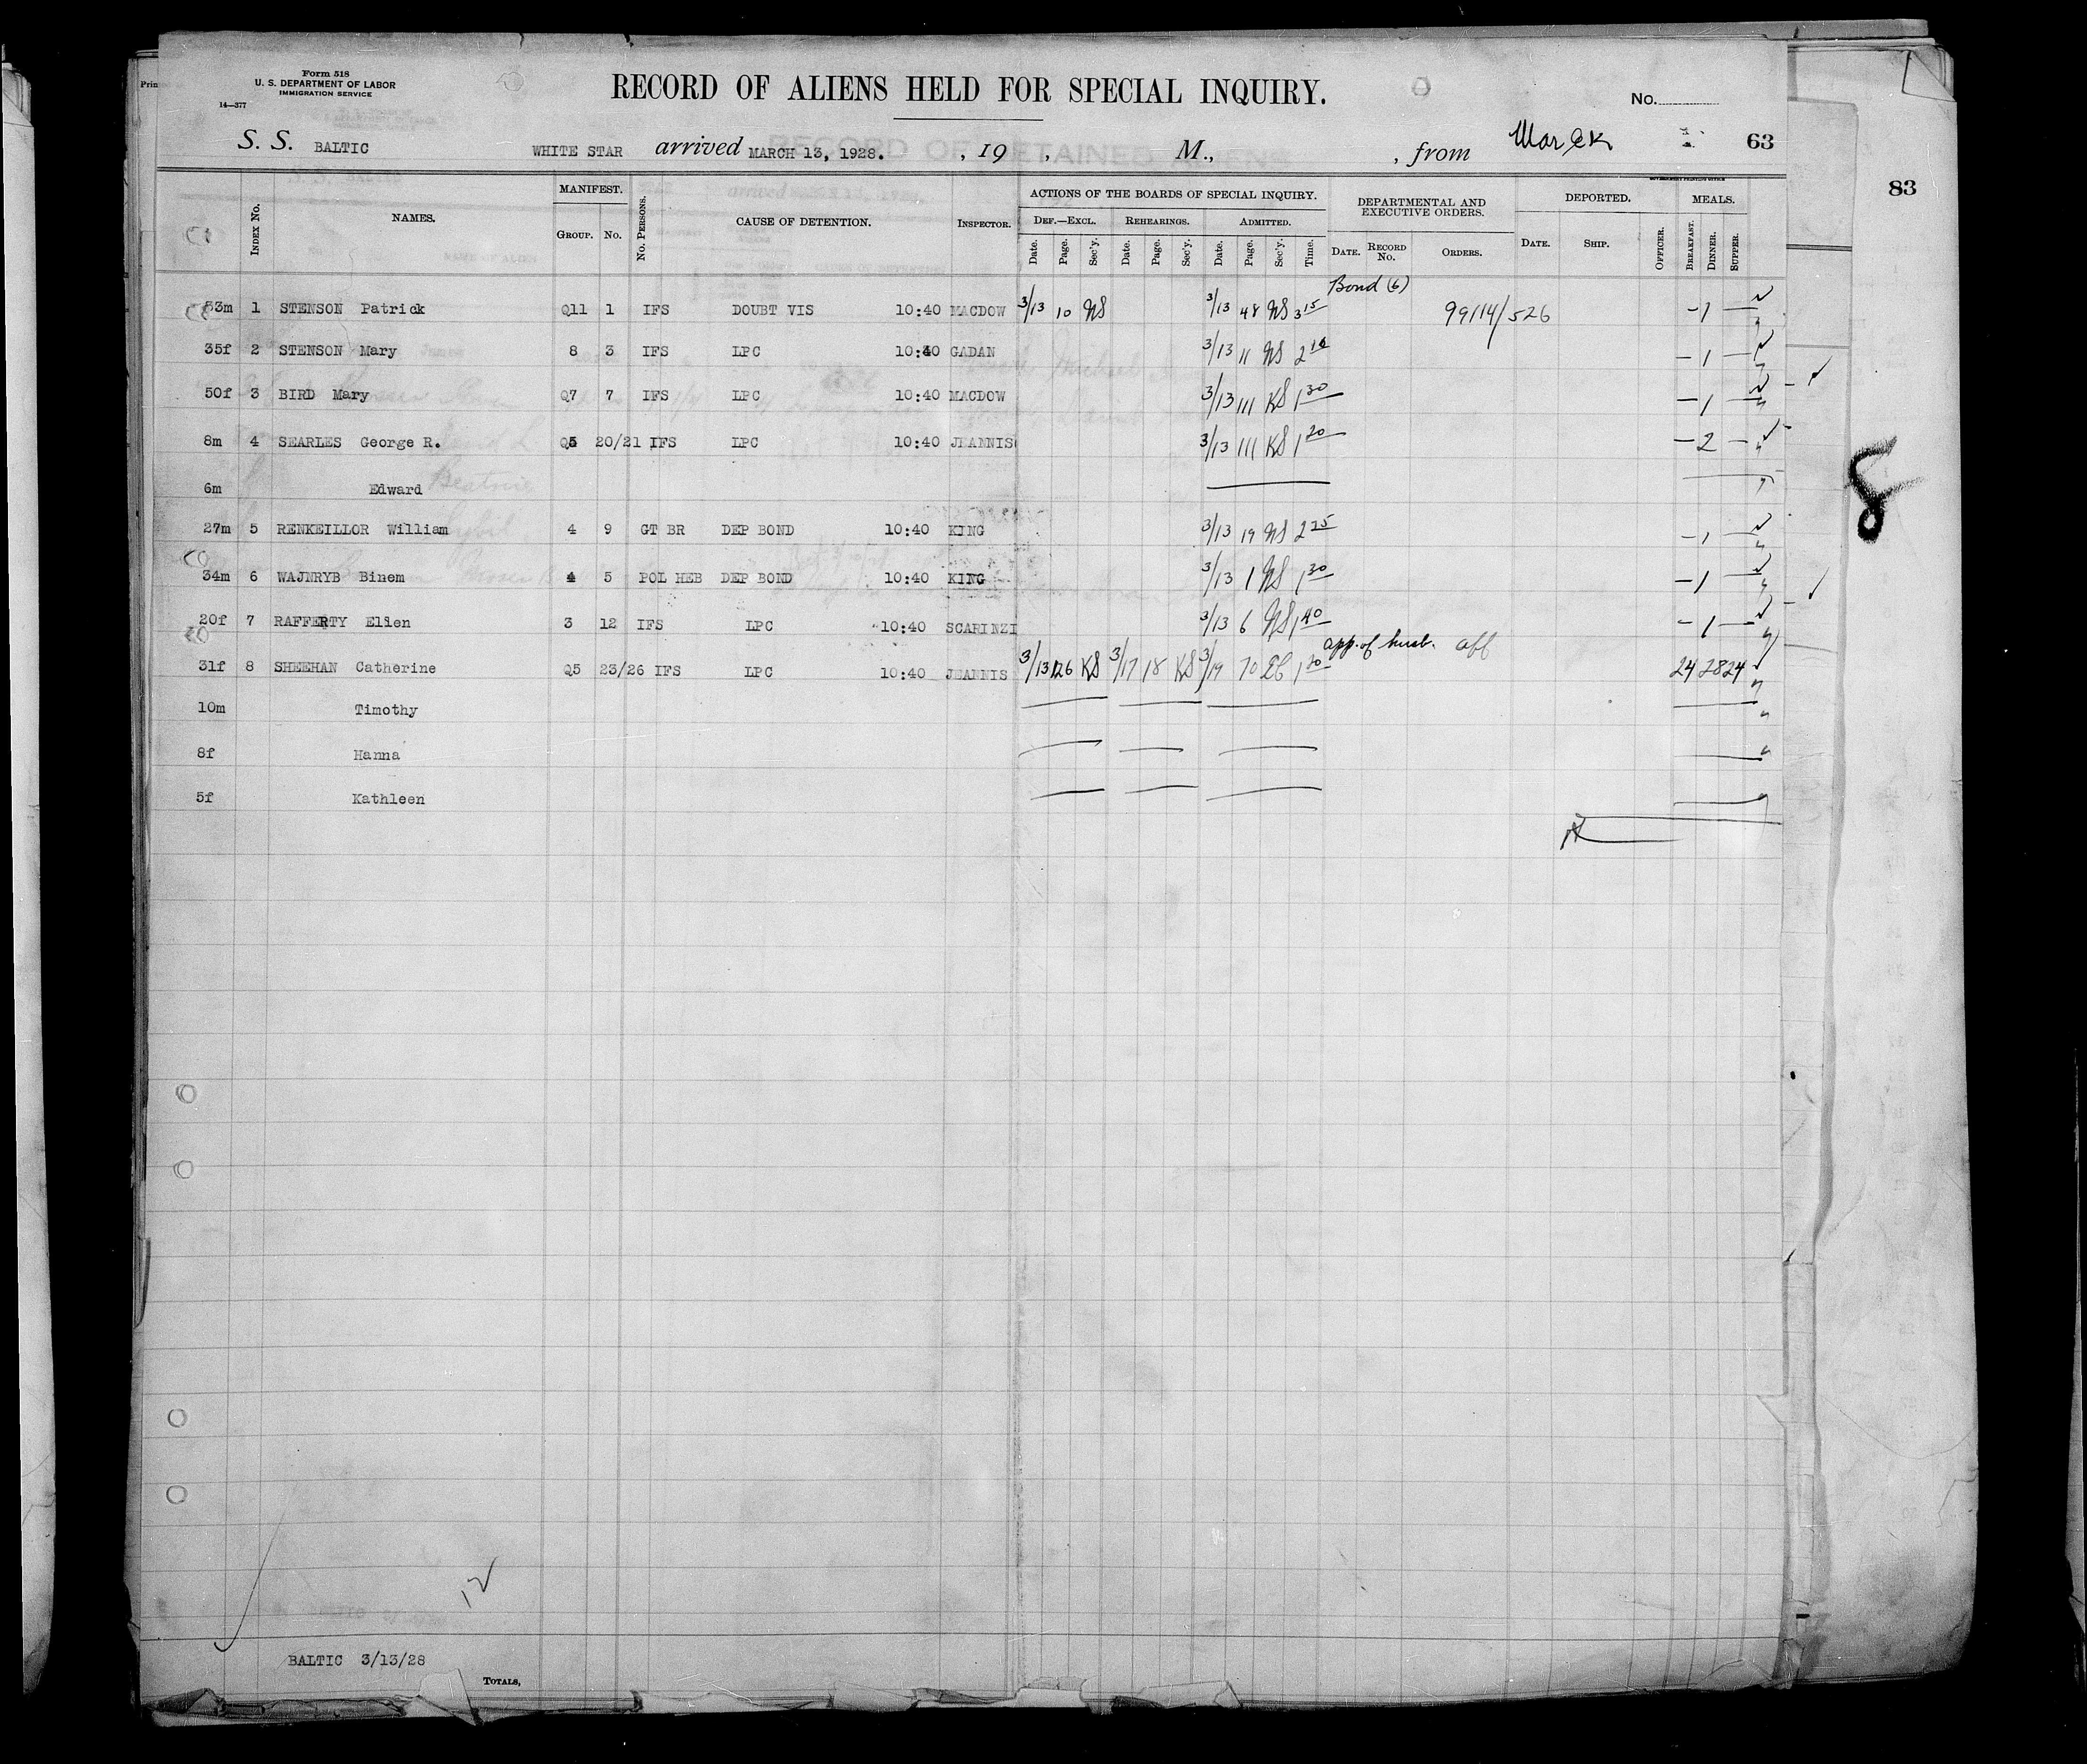 Form 518
U. S. DEPARTMENT OF LABOR
IMMIGRATION SERVICE
14—377
RECORD OF ALIENS HELD FOR SPECIAL INQUIRY.
No.
S. S. BALTIC WHITE STAR arrived MARCH 13, 1928. , 19 , M., , from 63
83
INDEX No. NAMES. MANIFEST. GROUP. No. No. PERSONS. CAUSE OF DETENTION. INSPECTOR. ACTIONS OF THE BOARDS OF SPECIAL INQUIRY. DEPARTMENTAL AND EXECUTIVE ORDERS. DEPORTED. MEALS.
DEF.—EXCL. REHEARINGS. ADMITTED.
Date. Page. Sec'y. Date. Page. Sec'y. Date. Page. Sec'y. Time. DATE. RECORD No. ORDERS. DATE. SHIP. OFFICER. BREAKFAST. DINNER. SUPPER.
Bond (6)
53m 1 STENSON Patrick Q11 1 IFS DOUBT VIS 10:40 MACDOW 3/13 10 NS 3/13 48 NS 3 15 99114/526 – 1 –
35f 2 STENSON Mary 8 3 IFS LPC 10:40 GADAN 3/13 11 NS 2 10 – 1 –
50f 3 BIRD Mary Q7 7 IFS LPC 10:40 MACDOW 3/13 111 KS 1 30 – 1 –
8m 4 SEARLES George R. Q5 20/21 IFS LPC 10:40 JEANNIS 3/13 111 KS 1 20 – 2 –
6m Edward
27m 5 RENKEILLOR William 4 9 GT BR DEP BOND 10:40 KING 3/13 19 NS 2 25 – 1 –
34m 6 WAJNRYB Binem 4 5 POL HEB DEP BOND 10:40 KING 3/13 1 NS 1 30 – 1 –
20f 7 RAFFERTY Ellen 3 12 IFS LPC 10:40 SCARINZI 3/13 6 NS 1 40 – 1 –
app. of husb. aff
31f 8 SHEEHAN Catherine Q5 23/26 IFS LPC 10:40 JEANNIS 3/13 126 KS 3/17 18 KS 3/19 70 1 30 24 28 24
10m Timothy
8f Hanna
5f Kathleen
12
BALTIC 3/13/28
TOTALS,